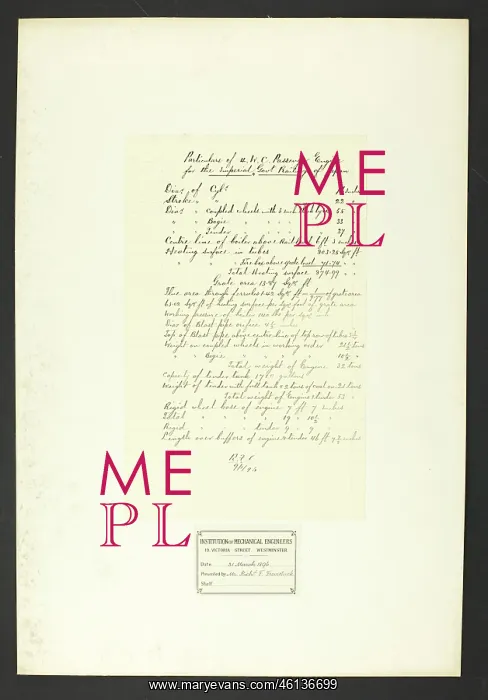 Particulars of 4. W. C. Passenger Engine
for the Imperial Govt Railway of Japan
Diar of Cylrs
Stroke " "
Diar " Coupled wheels with 3 inch thick tyres 55
" " Bogie " " " " 33
" " Tender " " " " 37
Centre line of boiler above Rail level 6 ft 3 inches
Heating surface in tubes 803.25 Sq. ft
" " " Fire box above grate level 71.74 " "
Total Heating surface 874.99 " "
Grate area Sq. ft
Flue area through ferrules Sq. ft of grate area
Sq. ft of heating surface per Sq. foot of grate area
Working pressure of boiler lbs per Sq. inch
Diar of Blast pipe orifice 4½ inches
Top of Blast pipe above centre line of top row of tubes
Weight on coupled wheels in working order 21½ tons
" " Bogie " " " 10½ "
Total weight of Engine 32 tons
Capacity of tender tank gallons
Weight of tender with full tank & 2 tons of coal on 21 tons
Total weight of Engine & tender 53 "
Rigid wheel base of engine 7 ft 7 inches
Total " " " 19 " 10½ "
Rigid " " tender 9 " 9 "
Length over buffers of engine & tender 46 ft inches
ME
PL
ME
PL
INSTITUTION OF MECHANICAL ENGINEERS
19 VICTORIA STREET, WESTMINSTER
Date 31 March 1896
Presented by Mr.
Shelf
www.maryevans.com/46136699